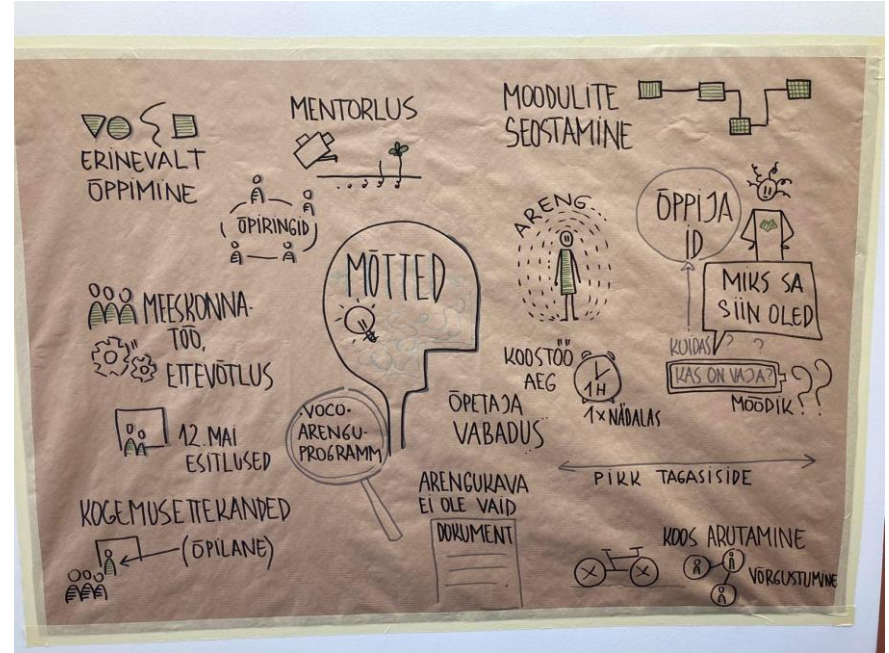 ERINEVALT
ÕPPIMINE
MENTORLUS
MOODULITE
SEOSTAMINE
ÕPIRINGID
MÕTTED
ARENG
ÕPPIJA
ID
MIKS SA
SIIN OLED
KUIDAS? ?
KAS ON VAJA?
MÕÕDIK??
MEESKONNA-
TÖÖ,
ETTEVÕTLUS
KOOSTÖÖ
AEG
1H
1x NÄDALAS
12. MAI
ESITLUSED
·VOCO·
ARENGU-
PROGRAMM
ÕPETAJA
VABADUS
PIKK TAGASISIDE
KOGEMUSETTEKANDED
(ÕPILANE)
ARENGUKAVA
EI OLE VAID
DOKUMENT
KOOS ARUTAMINE
VÕRGUSTUMINE